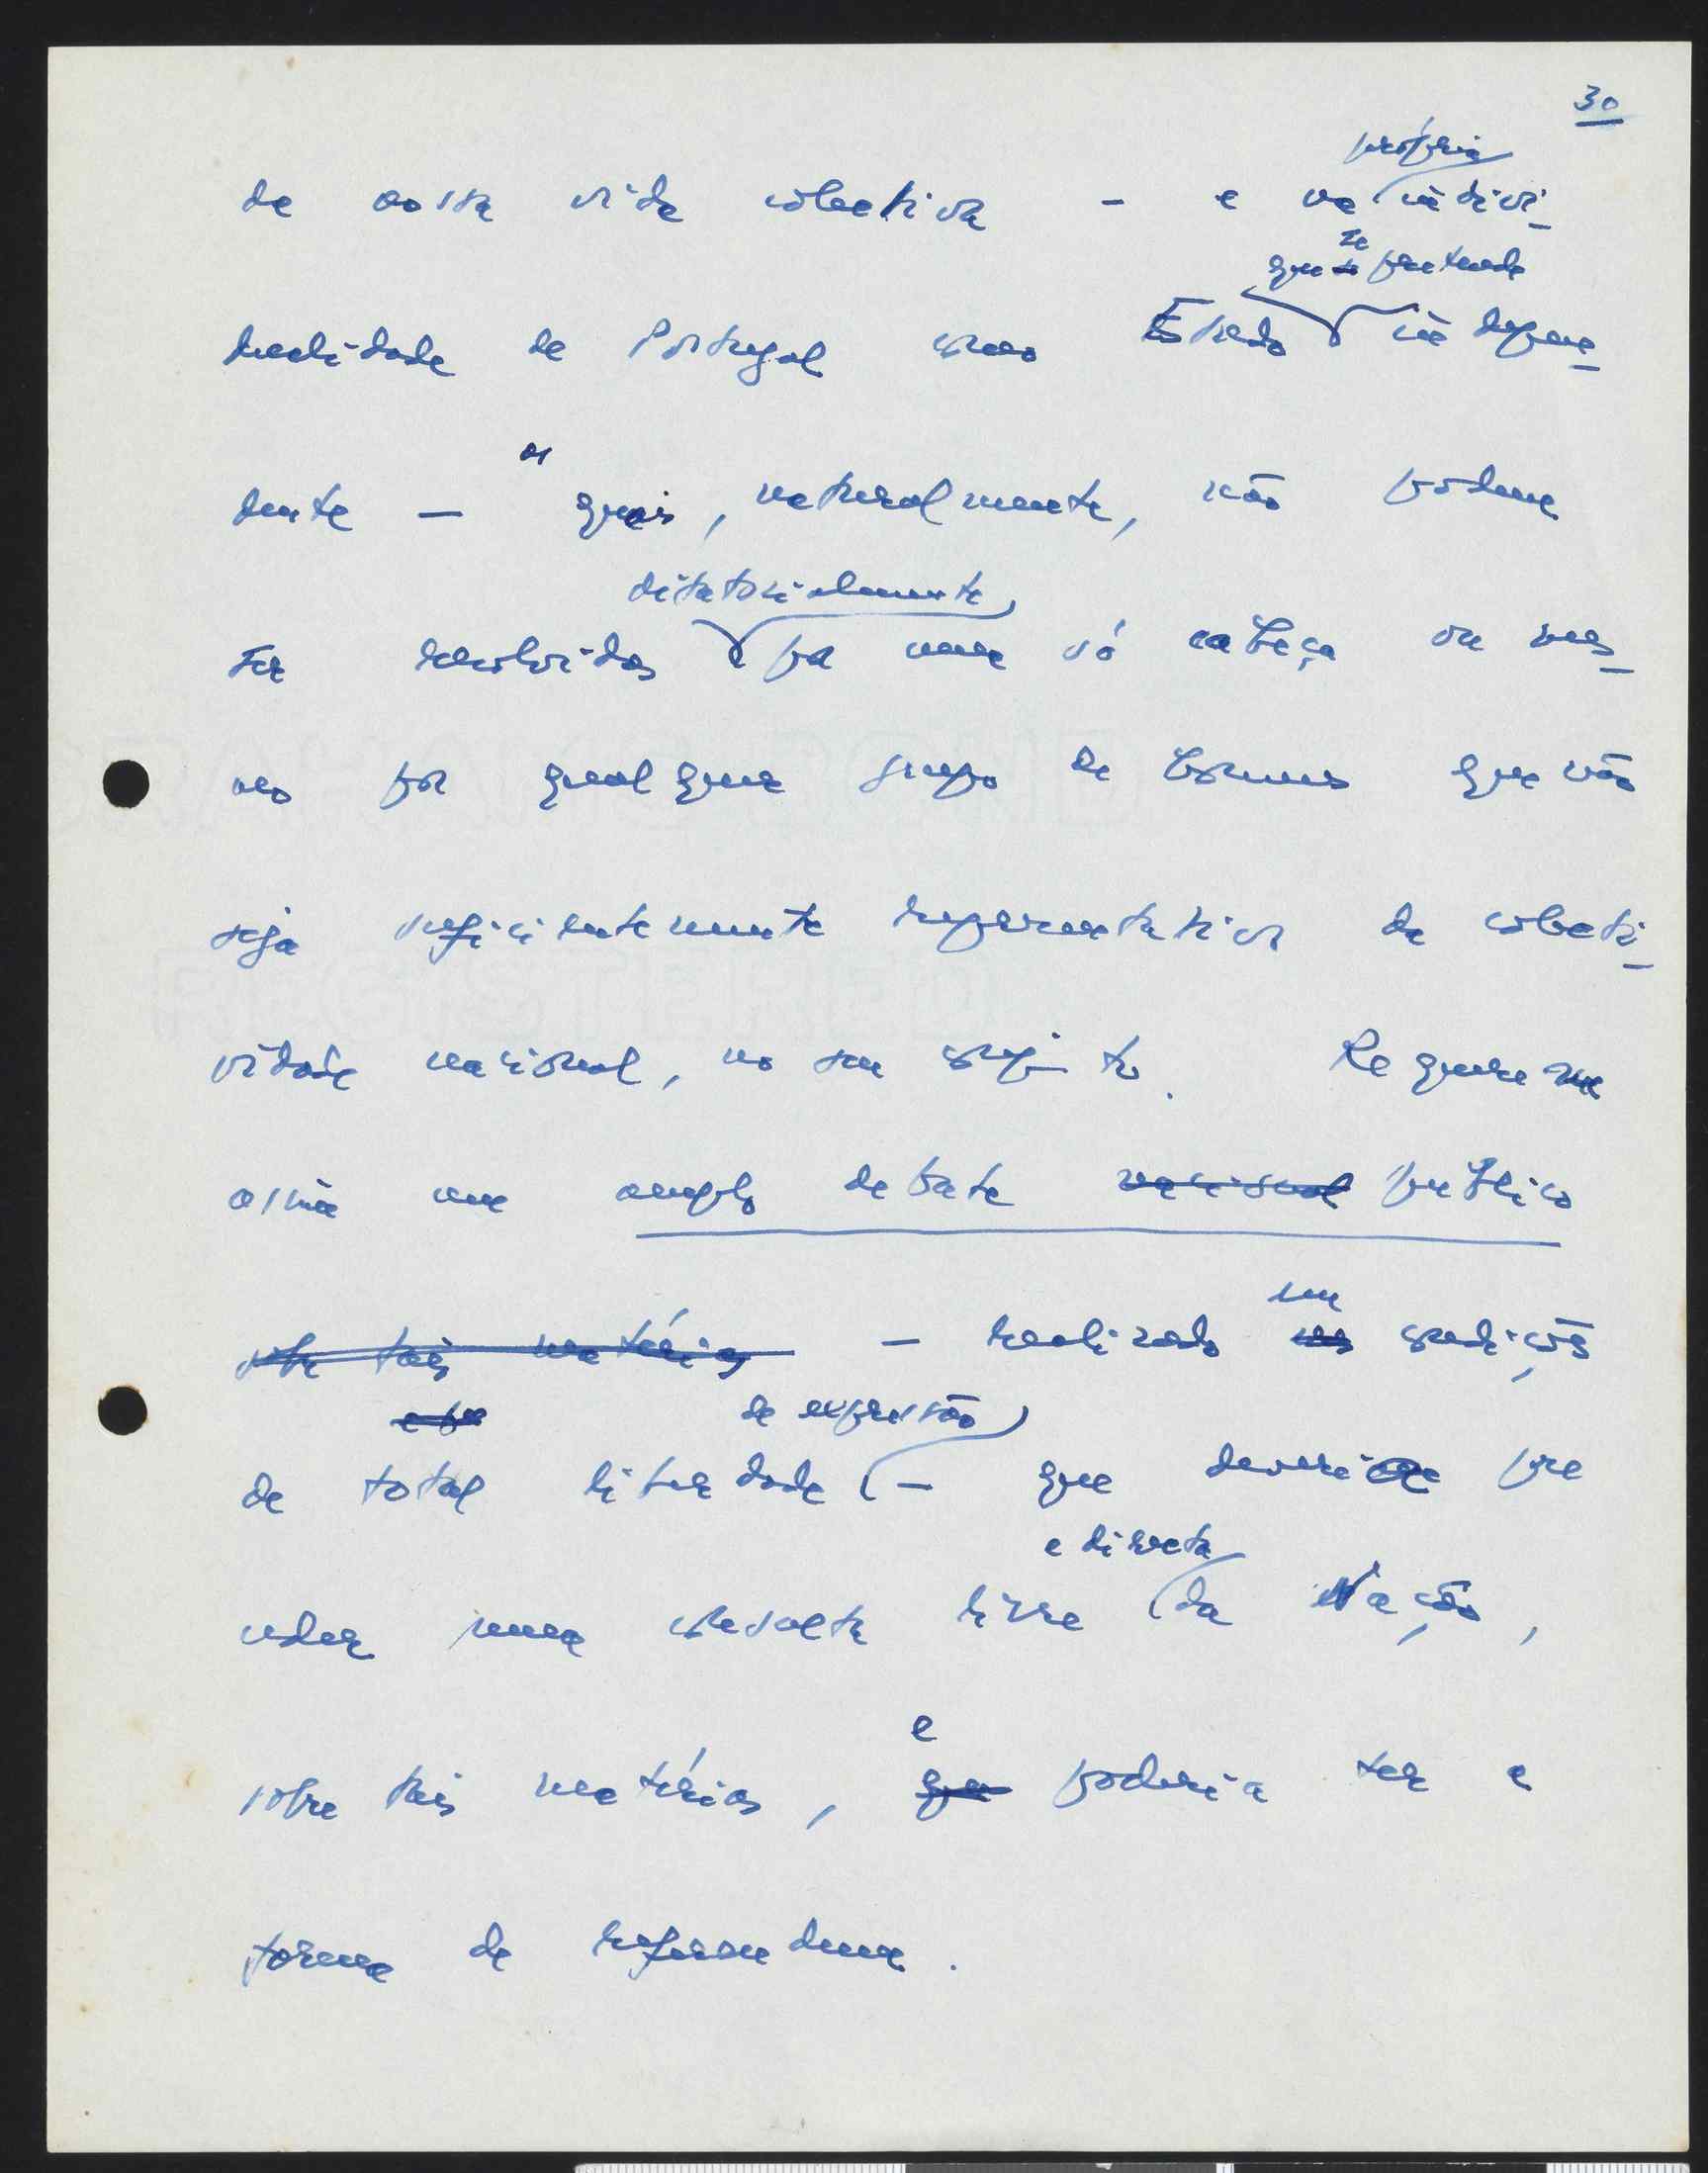 30
própria
da nossa vida colectiva – e na indivi-
se
que pretende
dualidade de Portugal como Estado indepen-
os
dente – quais, naturalmente, não podem
ditatorialmente
ser resolvidos por uma só cabeça ou mes-
mo por qualquer grupo de homens que não
seja suficientemente representativo da colecti-
vidade nacional, no seu conjunto. Requerem
assim um amplo debate nacional público
sobre tais matérias – realizado em condições
de expressão
de total liberdade – que deveria pre
e directa
ceder uma consulta livre da Nação,
e
sobre tais matérias, que poderia ter a
forma de referendum.